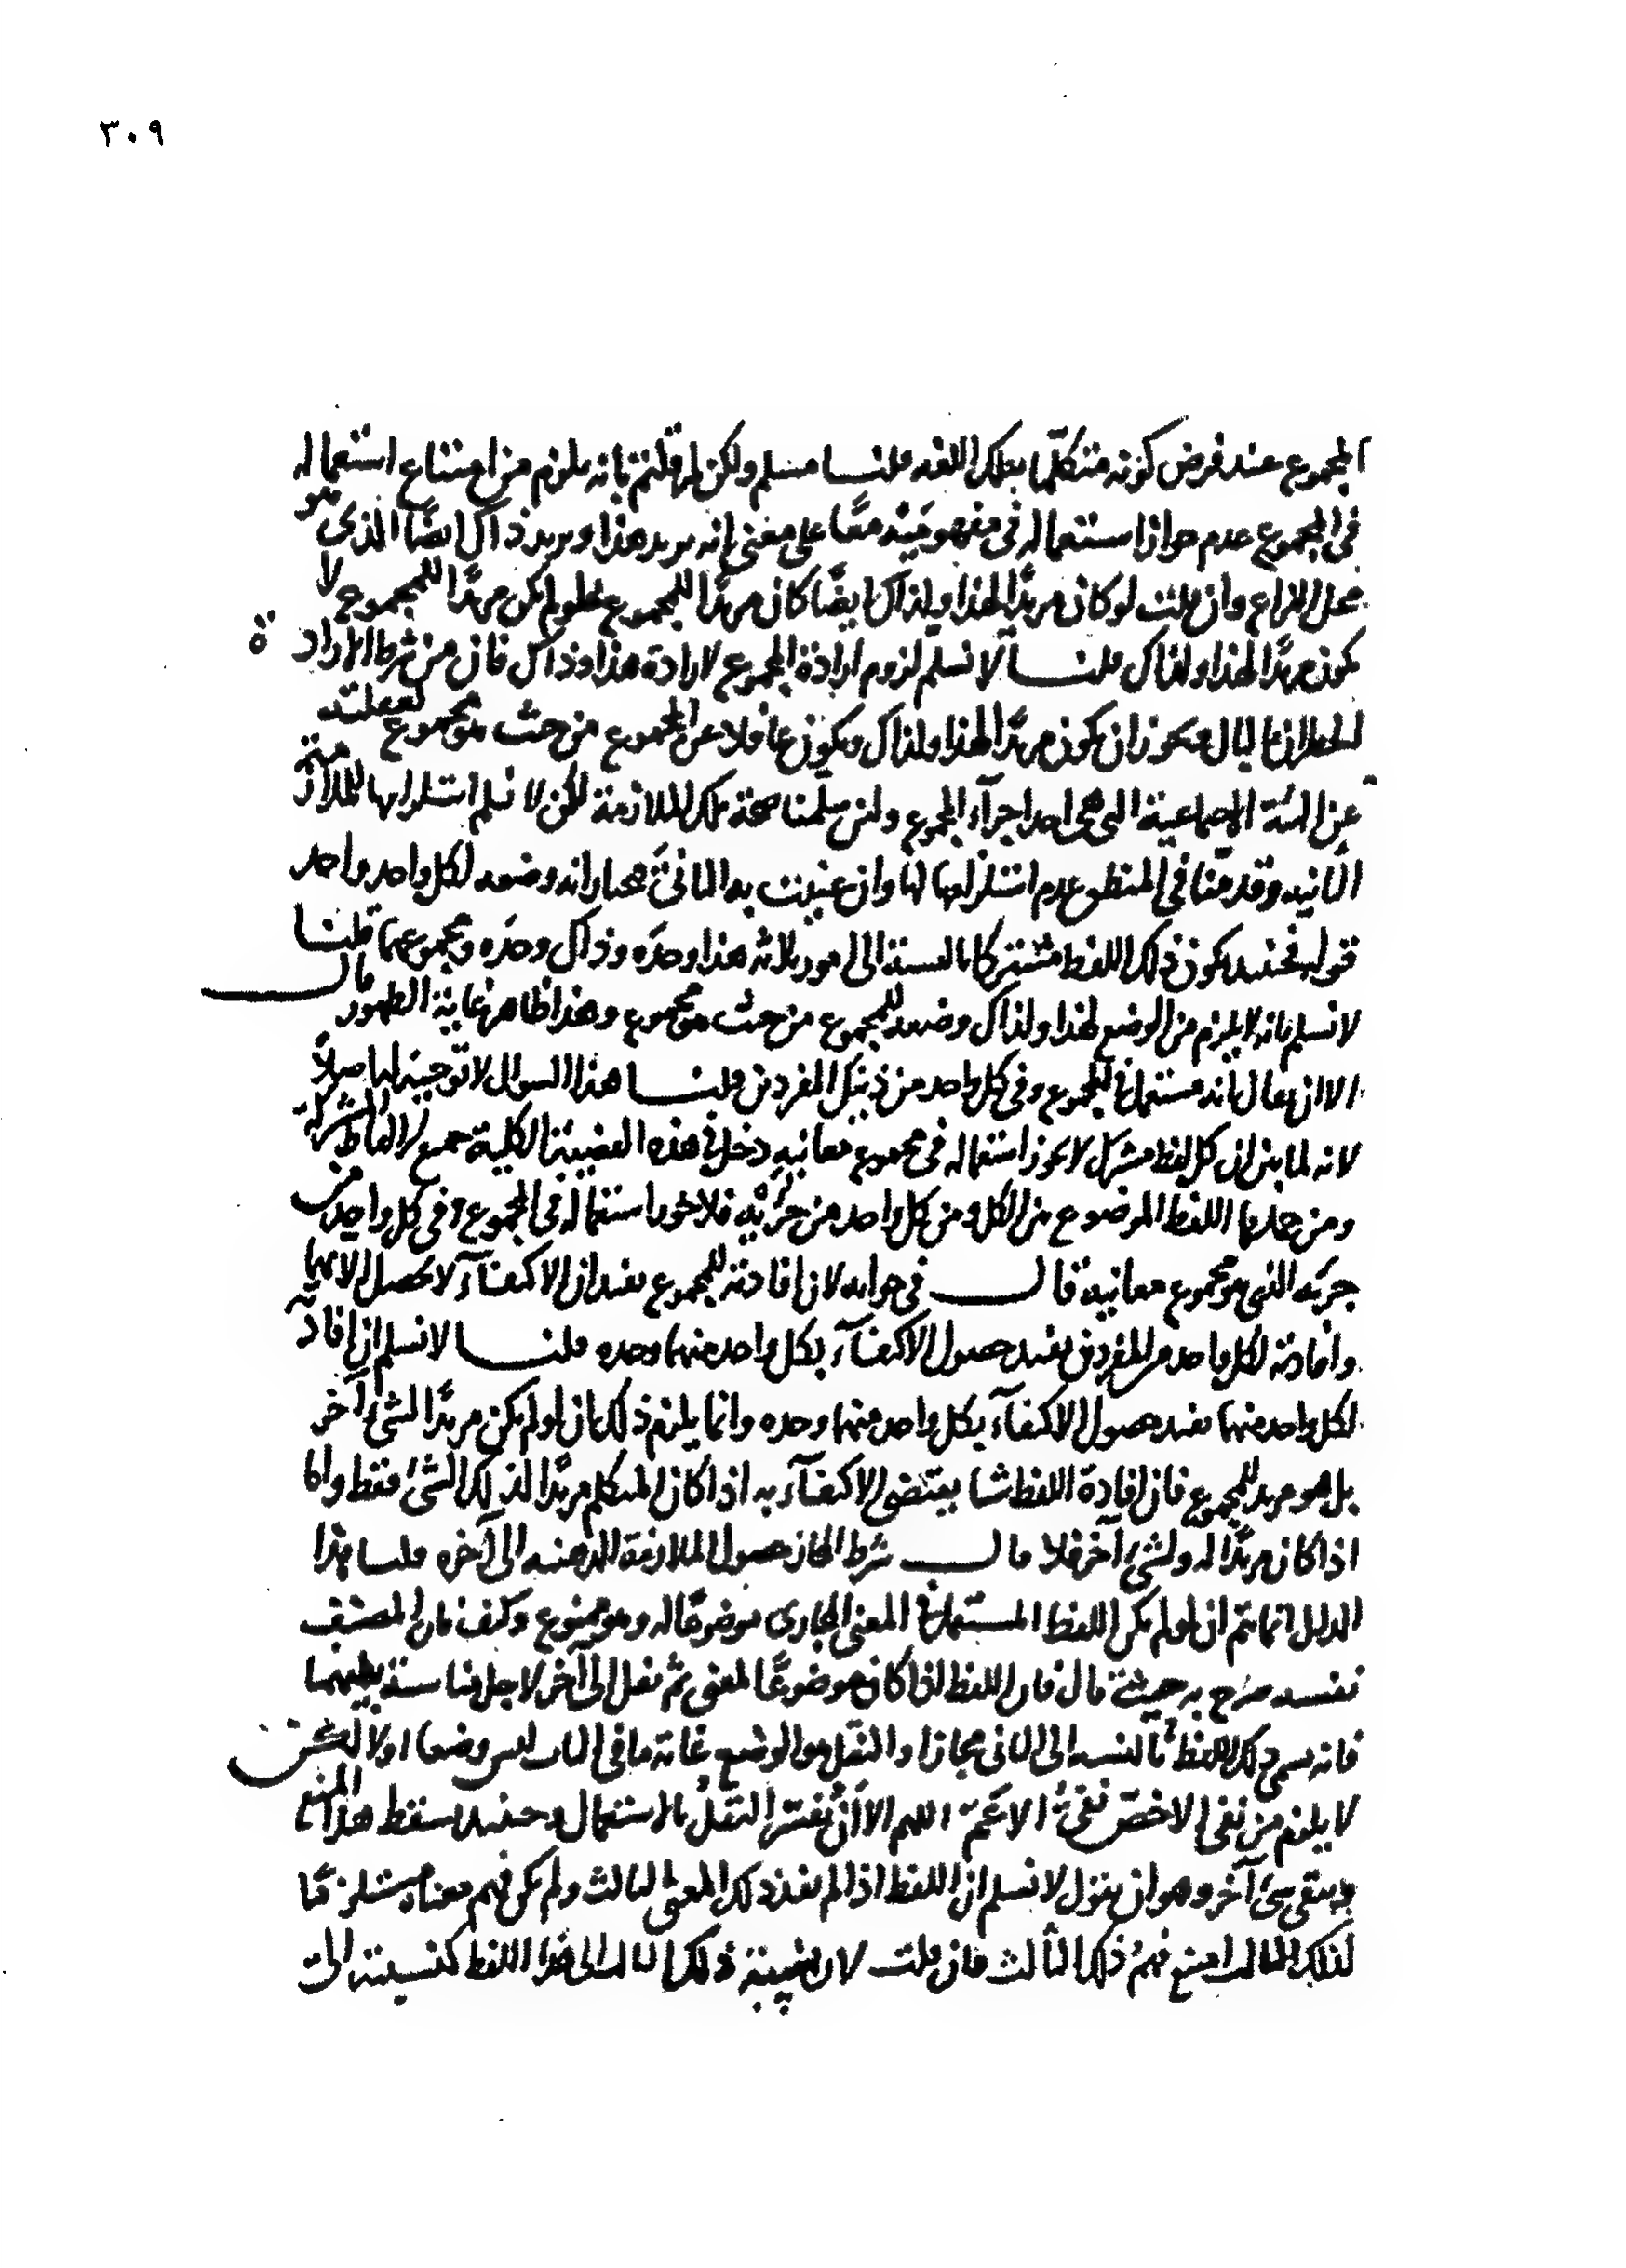 ٣٠٩
المجموع عند فرض كونه متكلما بتلك اللغة قلنا مسلم ولكن لم قلتم بانه يلزم من امتناع استعماله
في المجموع عدم جواز استعماله في مفهوميه معا على معنى انه يريد هذا ويريد ذاك ايضا الذي هو
محل النزاع وان قلت لو كان مريدا لهذا ولذاك ايضا كان مريدا للمجموع فلو لم يكن مريدا للمجموع لا
يكون مريدا لهذا ولذاك قلنا لا نسلم لزوم ارادة المجموع لارادة هذا وذاك فان من شرط الارادة
الخطران بالبال فيجوز ان يكون مريدا لهذا ولذاك ويكون غافلا عن المجموع من حيث هو مجموع لغفلته
عن الهيئة الاجتماعية التي هي احد اجزآء المجموع ولئن سلمنا صحة تلك الملازمة لكن لا نسلم استلزامها للملازمة
الثانية وقد بينا في المنطق عدم استلزامها لها وان عنيت به الثاني فنختار انه وضعه لكل واحد واحد
قوله فحينئذ يكون ذلك اللفظ مشتركا بالنسبة الى امور ثلاثة هذا وحده وذاك وحده ومجموعهما قلنا
لا نسلم بانه لا يلزم من الوضع لهذا ولذاك وضعه للمجموع من حيث هو مجموع وهذا ظاهر غاية الظهور قال
الا ان يقال بانه مستعمل في المجموع وفي كل واحد من ذينك المفردين قلنا هذا السوال لا توجيه له اصلا
لانه لما بين ان كل لفظ مشترك لا يجوز استعماله في مجموع معانيه دخل في هذه القضية الكلية جميع الالفاظ المشتركة
ومن جملتها اللفظ الموضوع من الكل ومن كل واحد من جزئيه فلا يجوز استعماله في المجموع وفي كل واحد من
جزئيه الذي هو مجموع معانيه قال في جوابه لان افادته للمجموع يفيد ان الاكتفآء لا يحصل الا بهما
وافادته لكل واحد من المفردين يفيد حصول الاكتفآء بكل واحد منهما وحده قلنا لا نسلم ان افادته
لكل واحد منهما يفيد حصول الاكتفآء بكل واحد منهما وحده وانما يلزم ذلك ان لو لم يكن مريدا لشئ آخر
بل هو مريد للمجموع فان افادة اللفظ شيئا يقتضي الاكتفآء به اذا كان المتكلم مريدا لذلك الشئ فقط واما
اذا كان مريدا له ولشئ آخر فلا قال شرط المجاز حصول الملازمة الذهنية الى آخره قلنا هذا
الدليل انما يتم ان لو لم يكن اللفظ المستعمل في المعنى المجازي موضوعا له وهو ممنوع وكيف فان المصنف
نفسه صرح به حيث قال فان اللفظ اذا كان موضوعا لمعنى ثم نقل الى آخر لاجل مناسبة بينهما
فانه يسمى ذلك اللفظ بالنسبة الى الثاني مجازا والنقل هو الوضع غاية ما في الباب ليس وضعا اولا لكن
لا يلزم من نفي الاخص نفي الاعم اللهم الا ان يفسر النقل بالاستعمال وحينئذ يسقط هذا المنع
ويبقى شئ آخر وهو ان يقول لا نسلم ان اللفظ اذا لم يفد ذلك المعنى الثالث ولم يكن فهم معناه مستلزما
لذلك الثالث امتنع فهم ذلك الثالث فان قلت لان نسبة ذلك الثالث الى هذا اللفظ كنسبته الى